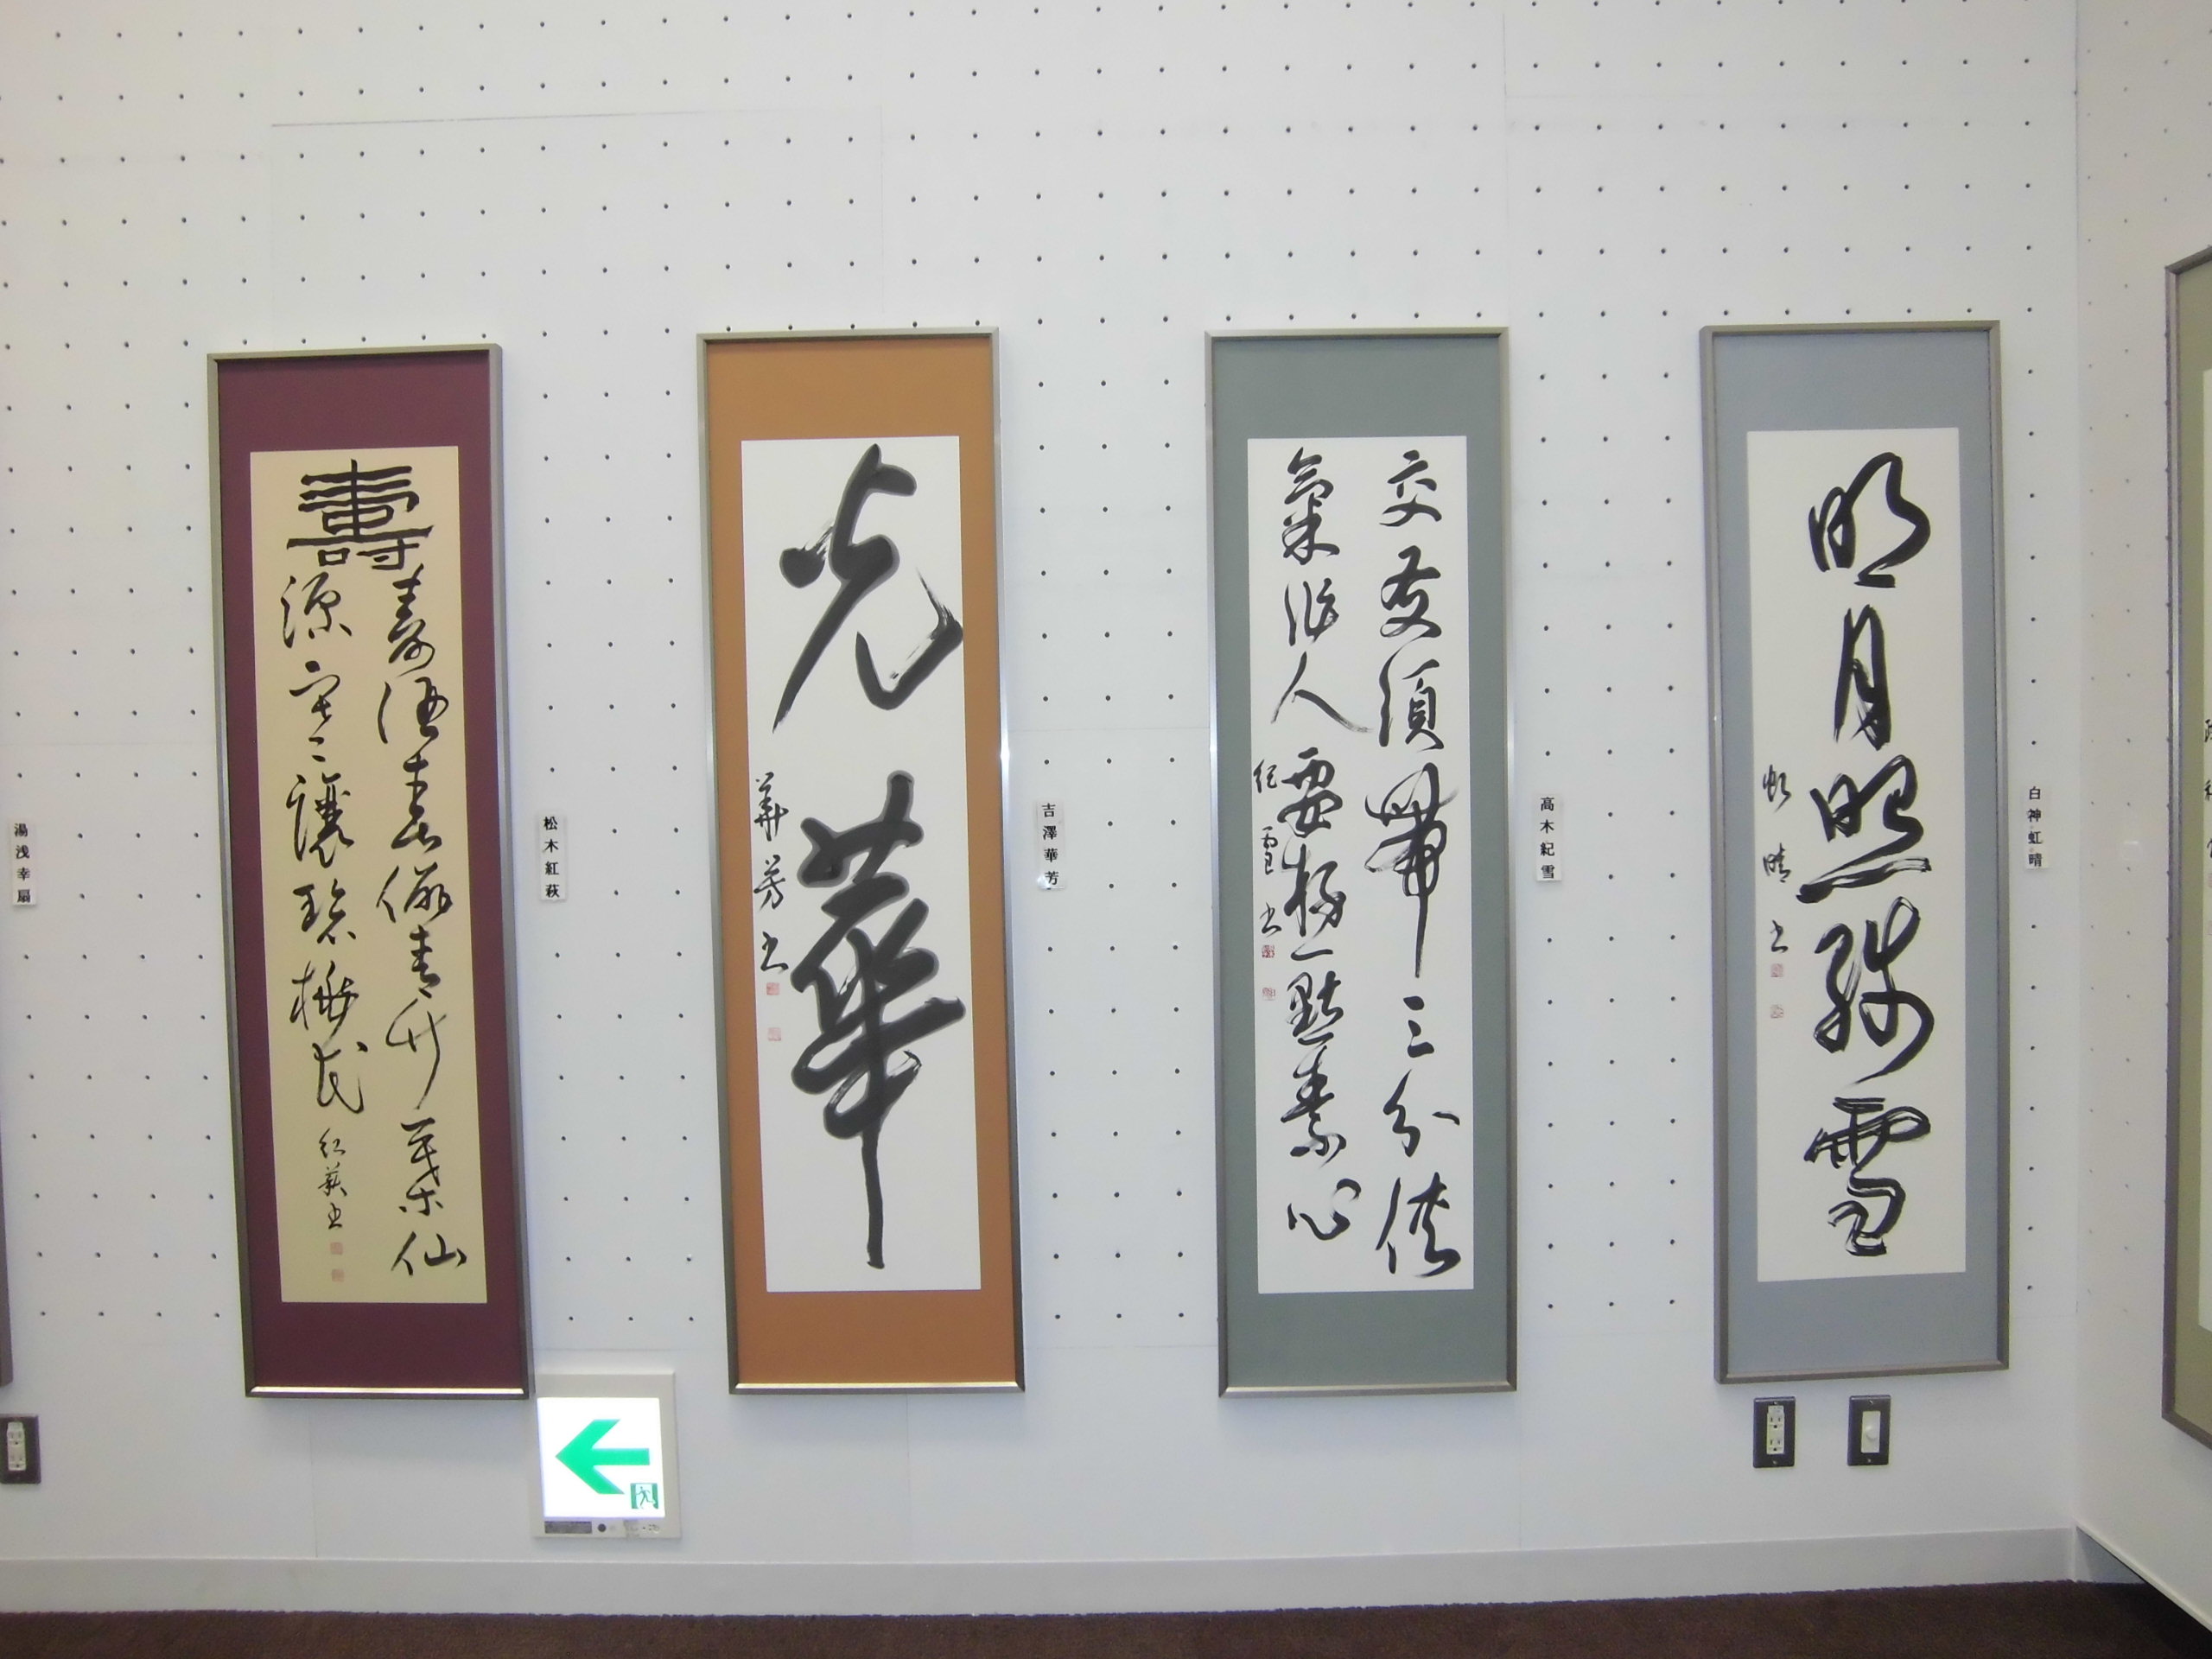 白神虹晴
明月照残雪
虹晴書
高木紀雪
交友須帶三分俠
氣作人要存一點素心
紀雪書
吉澤華芳
光華
華芳書
松木紅萩
壽
壽酒 青竹葉仙
源 讓碧 花
紅萩書
湯浅幸扇